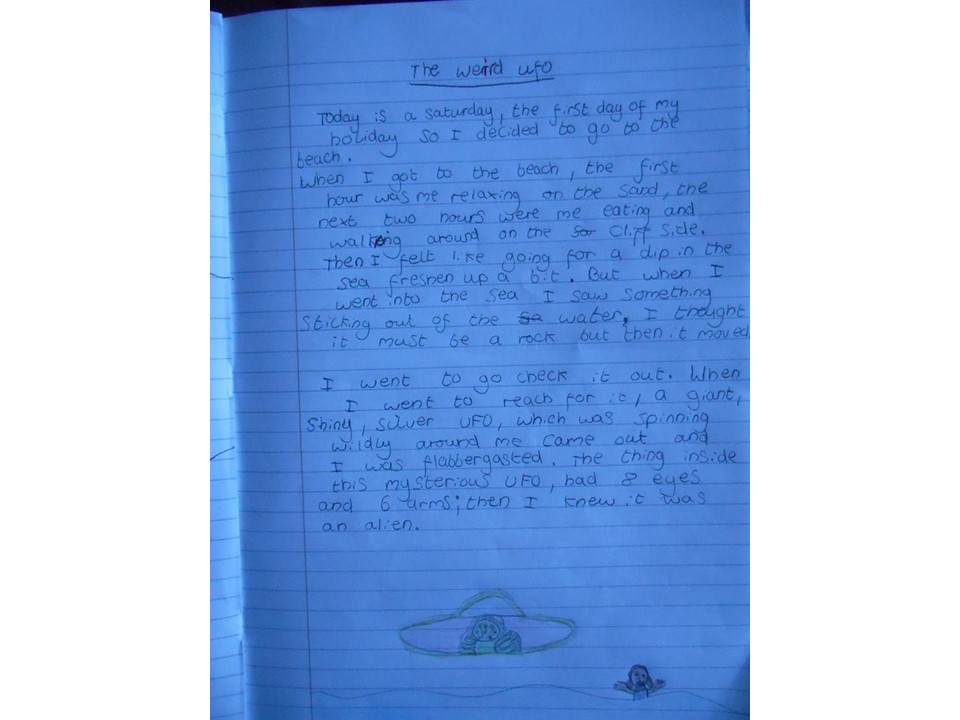 The weird UFO
Today is a saturday, the first day of my
holiday so I decided to go to the
beach.
When I got to the beach, the first
hour was me relaxing on the sand, the
next two hours were me eating and
walking around on the cliff side.
Then I felt like going for a dip in the
sea freshen up a bit. But when I
went into the sea I saw something
sticking out of the water, I thought
it must be a rock but then it moved
I went to go check it out. When
I went to reach for it, a giant,
shiny, silver UFO, which was spinning
wildly around me came out and
I was flabbergasted. The thing inside
this mysterious UFO, had 8 eyes
and 6 arms; then I knew it was
an alien.